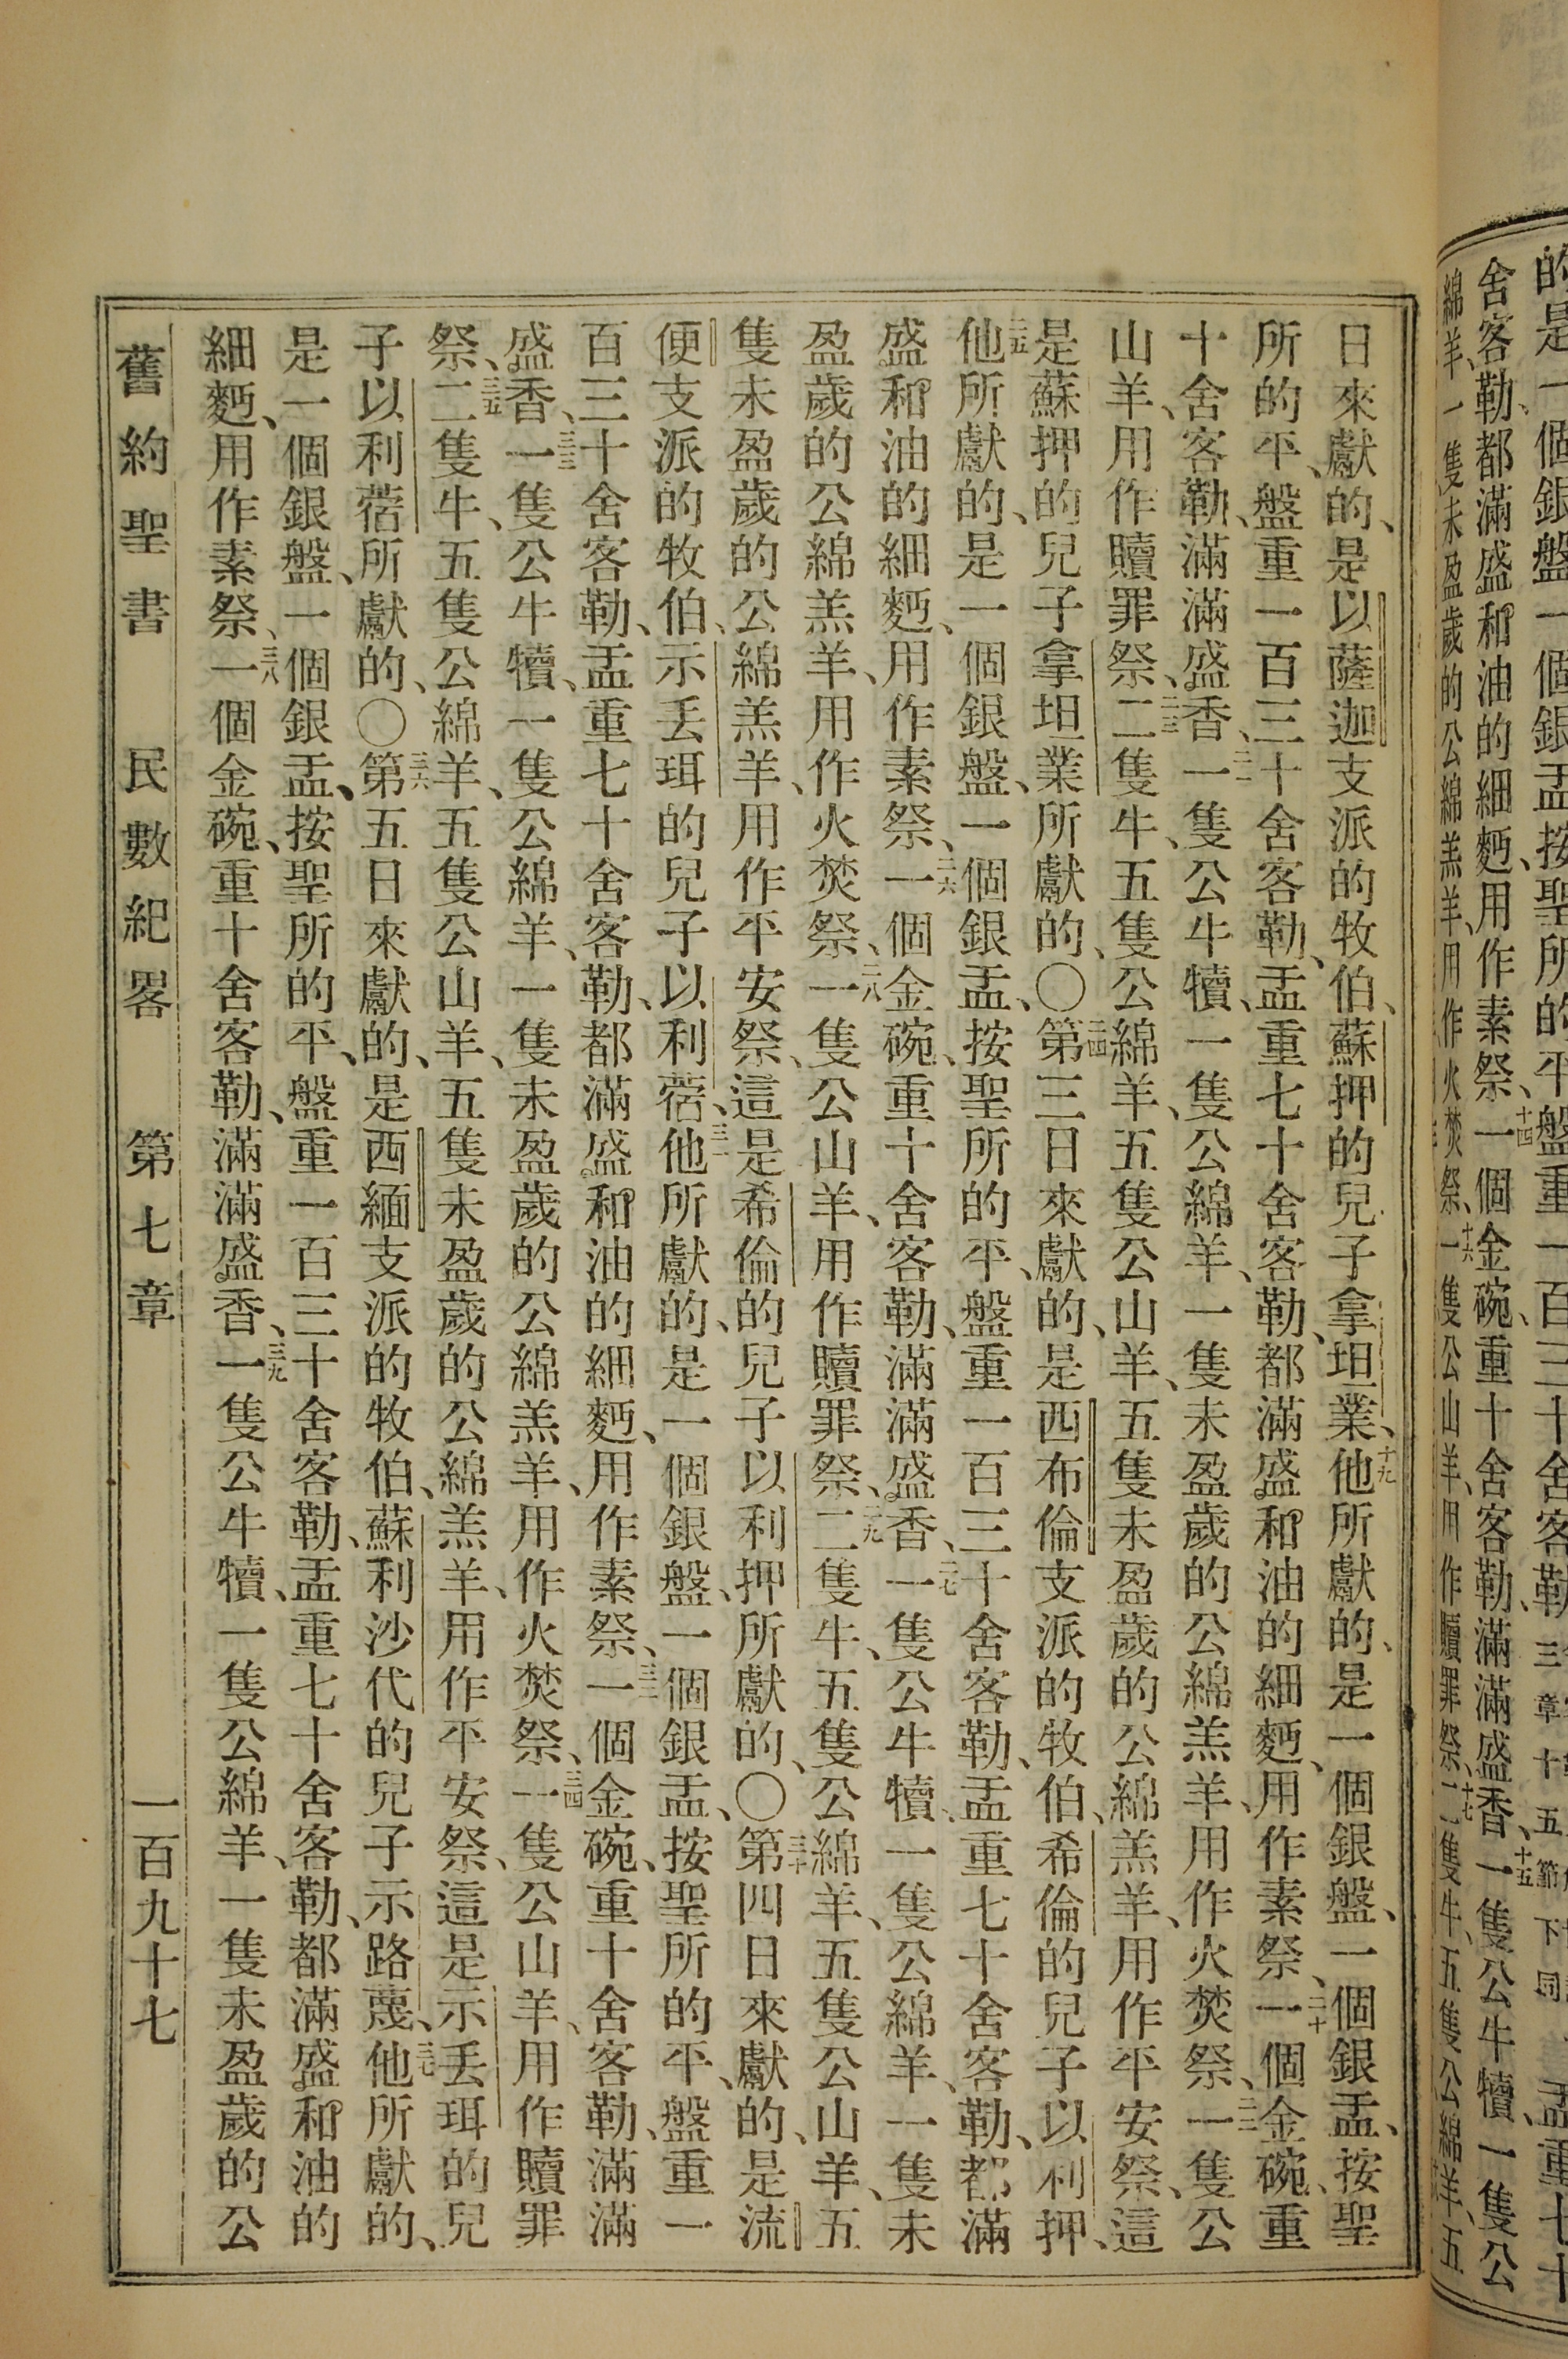 的是一個銀盤一個銀盂按聖所的平盤重一百三十舍客勒
三章十五節下同
盂重七十
舍客勒、都滿盛和油的細麪、用作素祭、十四一個金碗、重十舍客勒、滿滿盛香、十五一隻公牛犢、一隻公
綿羊、一隻未盈歲的公綿羔羊、用作火焚祭、十六一隻公山羊、用作贖罪祭、十七二隻牛、五隻公綿羊、五
日來獻的、是以薩迦支派的牧伯、蘇押的兒子拿坦業、十九他所獻的、是一個銀盤、一個銀盂、按聖
所的平、盤重一百三十舍客勒、盂重七十舍客勒、都滿盛和油的細麪、用作素祭、二十一個金碗、重
十舍客勒、滿滿盛香、二一一隻公牛犢、一隻公綿羊、一隻未盈歲的公綿羔羊、用作火焚祭、二二一隻公
山羊、用作贖罪祭、二三二隻牛、五隻公綿羊、五隻公山羊、五隻未盈歲的公綿羔羊、用作平安祭、這
是蘇押的兒子拿坦業所獻的、〇二四第三日來獻的、是西布倫支派的牧伯、希倫的兒子以利押、
二五他所獻的、是一個銀盤、一個銀盂、按聖所的平、盤重一百三十舍客勒、盂重七十舍客勒、都滿
盛和油的細麪、用作素祭、二六一個金碗、重十舍客勒、滿滿盛香、二七一隻公牛犢、一隻公綿羊、一隻未
盈歲的公綿羔羊、用作火焚祭、二八一隻公山羊、用作贖罪祭、二九二隻牛、五隻公綿羊、五隻公山羊、五
隻未盈歲的公綿羔羊、用作平安祭、這是希倫的兒子以利押所獻的、〇三十第四日來獻的、是流
便支派的牧伯、示丟珥的兒子以利蓿、三一他所獻的、是一個銀盤、一個銀盂、按聖所的平、盤重一
百三十舍客勒、盂重七十舍客勒、都滿盛和油的細麪、用作素祭、三二一個金碗、重十舍客勒、滿滿
盛香、三三一隻公牛犢、一隻公綿羊、一隻未盈歲的公綿羔羊、用作火焚祭、三四一隻公山羊、用作贖罪
祭、三五二隻牛、五隻公綿羊、五隻公山羊、五隻未盈歲的公綿羔羊、用作平安祭、這是示丟珥的兒
子以利蓿所獻的、〇三六第五日來獻的、是西緬支派的牧伯、蘇利沙代的兒子示路蔑、三七他所獻的、
是一個銀盤、一個銀盂、按聖所的平、盤重一百三十舍客勒、盂重七十舍客勒、都滿盛和油的
細麪、用作素祭、三八一個金碗、重十舍客勒、滿滿盛香、三九一隻公牛犢、一隻公綿羊、一隻未盈歲的公
舊約聖書 民數紀畧 第七章 一百九十七